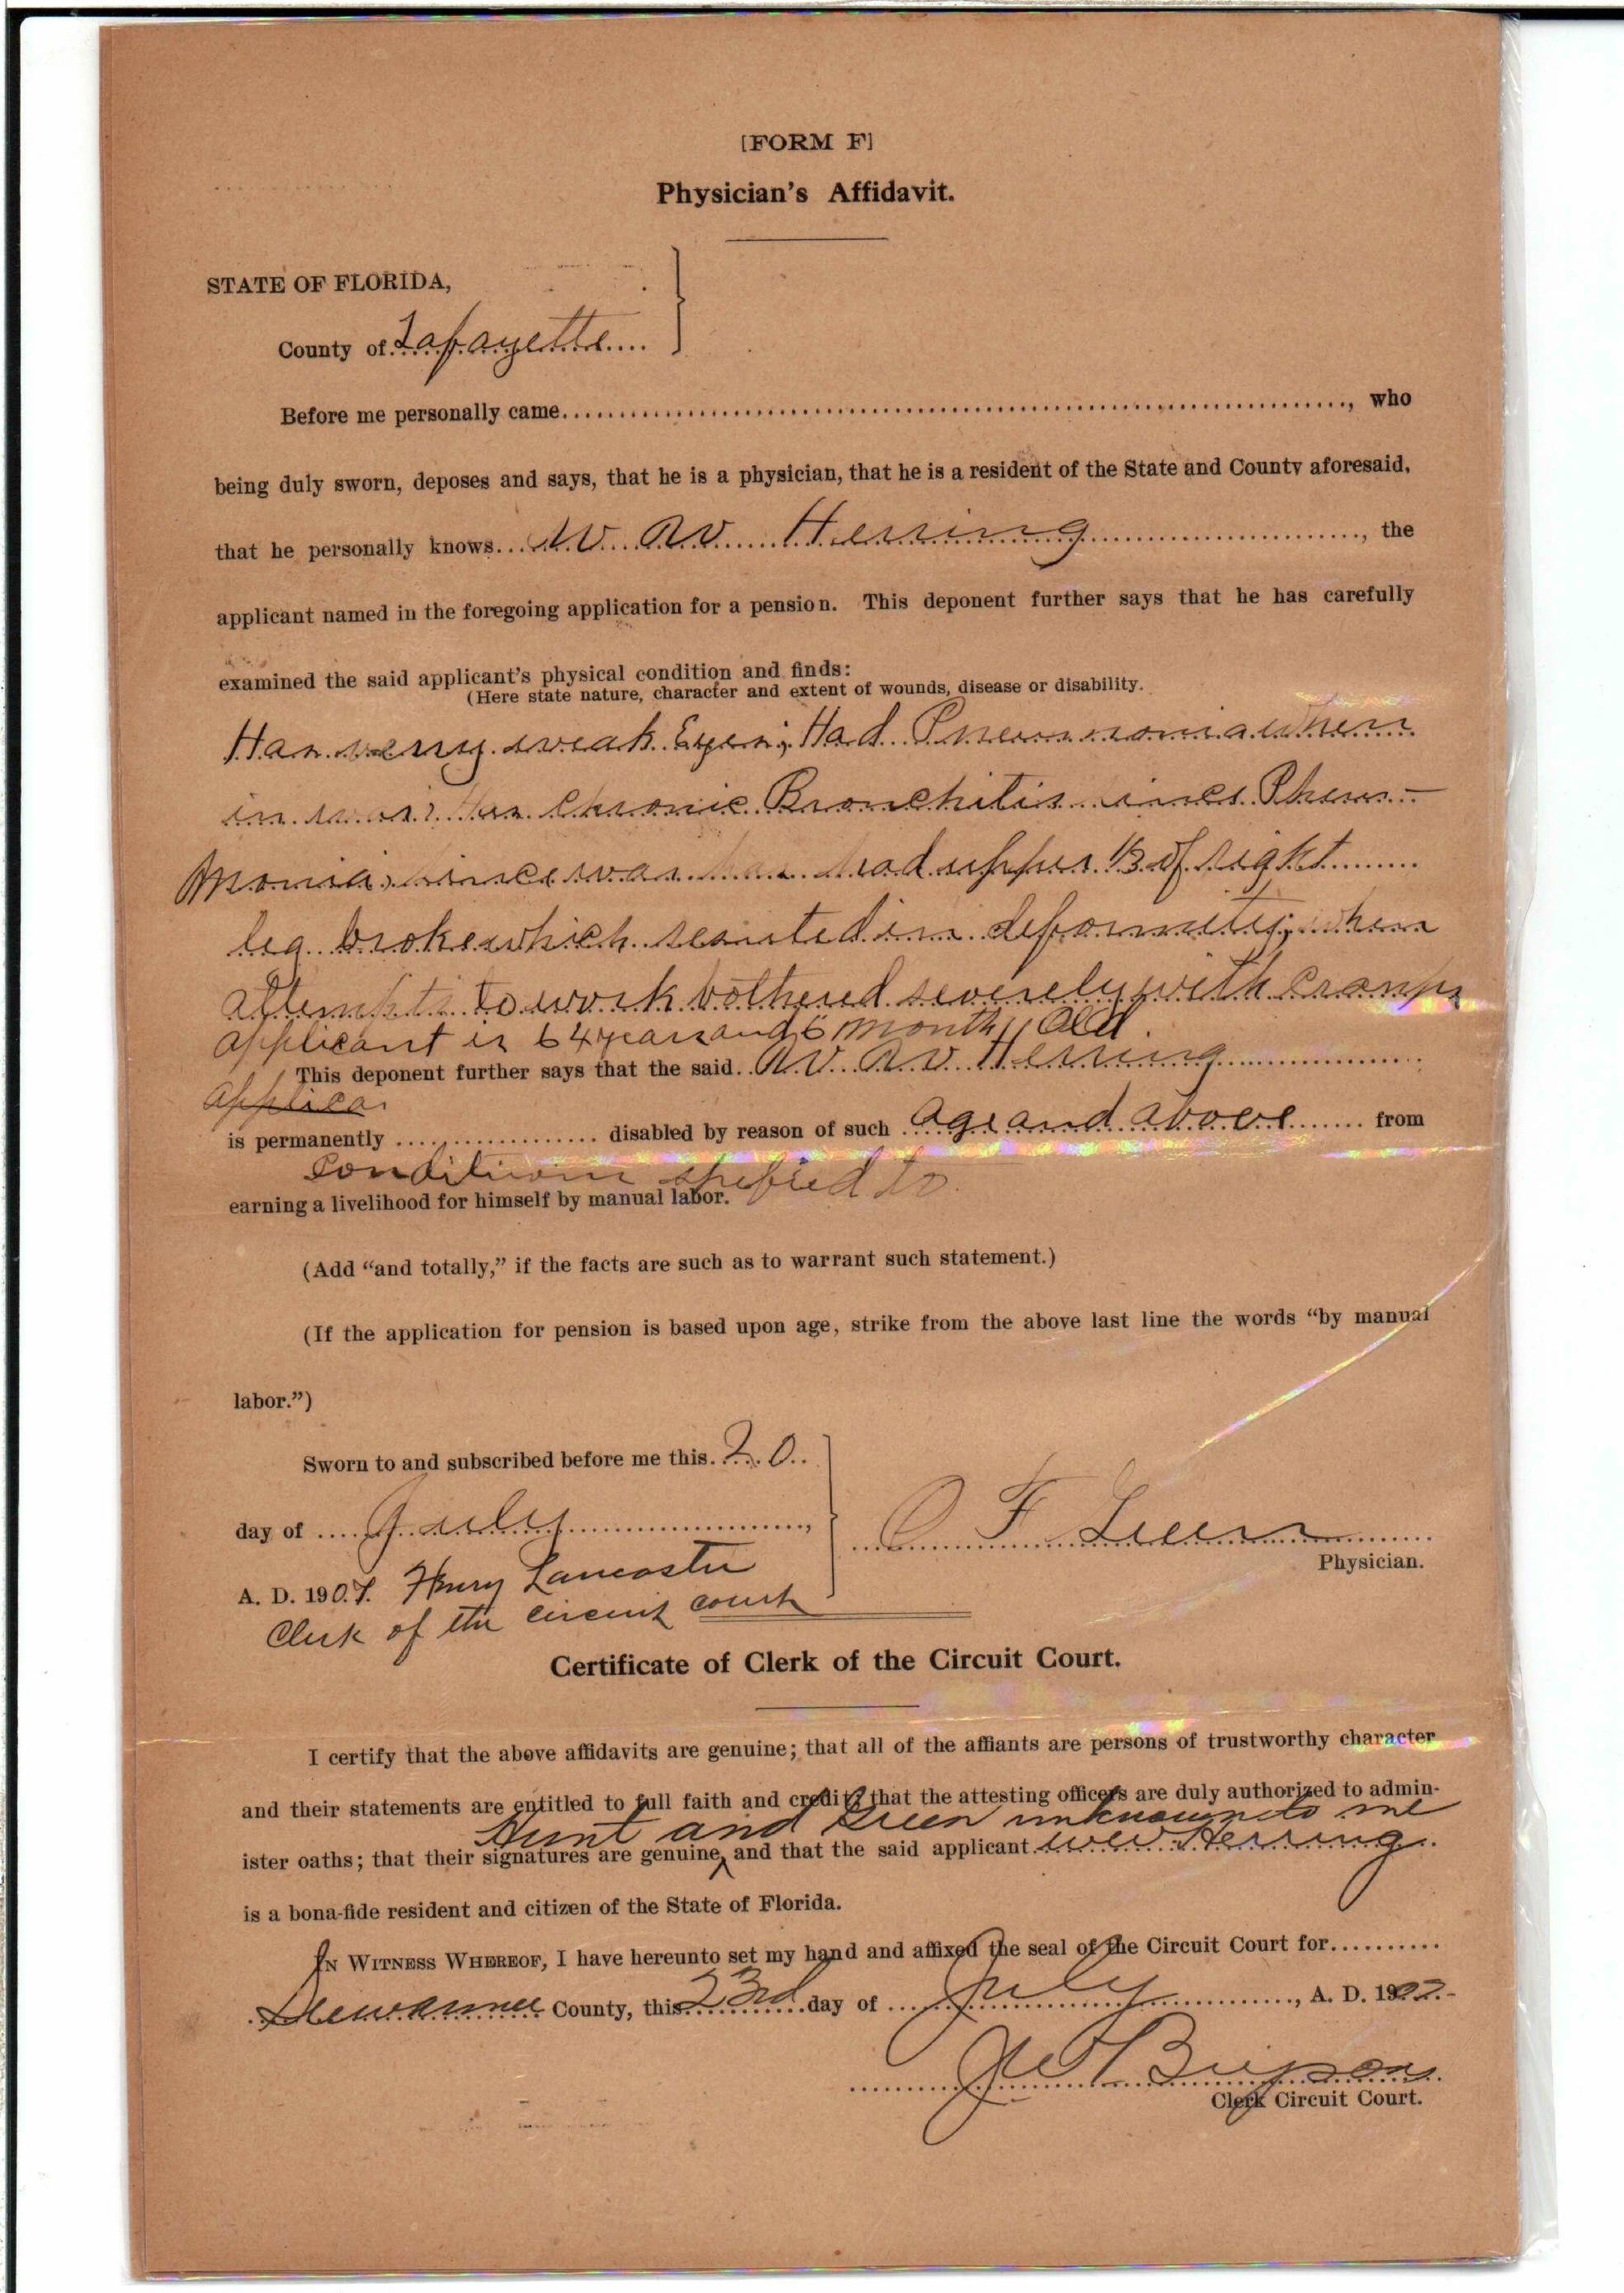 [FORM F]
Physician's Affidavit.
STATE OF FLORIDA,
County of Lafayette
Before me personally came, who
being duly sworn, deposes and says, that he is a physician, that he is a resident of the State and County aforesaid,
that he personally knows W. W. Herring, the
applicant named in the foregoing application for a pension. This deponent further says that he has carefully
examined the said applicant's physical condition and finds:
(Here state nature, character and extent of wounds, disease or disability.
Has very weak Eyes; Had Pneumonia when
in war; Has Chronic Bronchitis since Pheu-
monia, since war has had upper 1/3 of right
leg broke which resulted in deformity; when
attempts to work bothered severely with cramps
applicant is 64 years and 6 months old.
This deponent further says that the said W. W. Herring
applica
is permanently disabled by reason of such age and above from
conditions to
earning a livelihood for himself by manual labor.
(Add "and totally," if the facts are such as to warrant such statement.)
(If the application for pension is based upon age, strike from the above last line the words "by manual
labor.")
Sworn to and subscribed before me this 20
day of July,
A. D. 1907. Henry Lancaster
Clerk of the circuit court
O F Green
Physician.
Certificate of Clerk of the Circuit Court.
I certify that the above affidavits are genuine; that all of the affiants are persons of trustworthy character
and their statements are entitled to full faith and credit; that the attesting officers are duly authorized to admin-
Hunt and Green unknown to me
ister oaths; that their signatures are genuine, and that the said applicant W W Herring
is a bona-fide resident and citizen of the State of Florida.
IN WITNESS WHEREOF, I have hereunto set my hand and affixed the seal of the Circuit Court for
Suwannee County, this 23rd day of July, A. D. 1907.
Clerk Circuit Court.